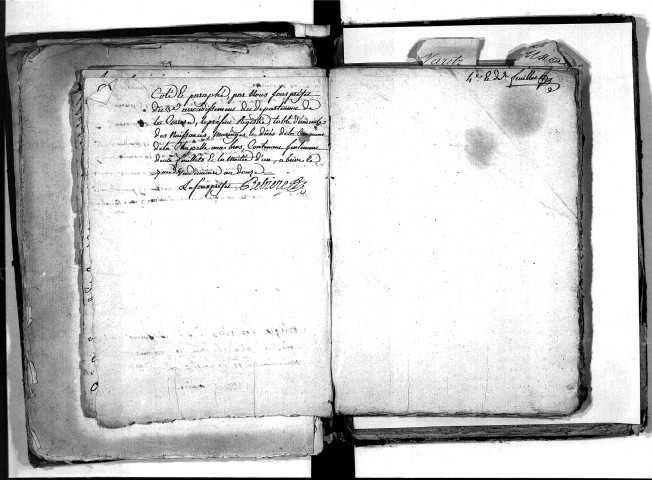 Coté & paraphé, par Nous sous préfet
du 3e arrondissement du departement de
la Correze, le présent Registre, table décennale
des Naissances, Mariages & décès de la Commune
de la Chapelle aux bros, Contenant seulement
feuillets & la moitié d'un, a brive le
vendemiaire an douze
Le sous préfet
4e & der feuillet